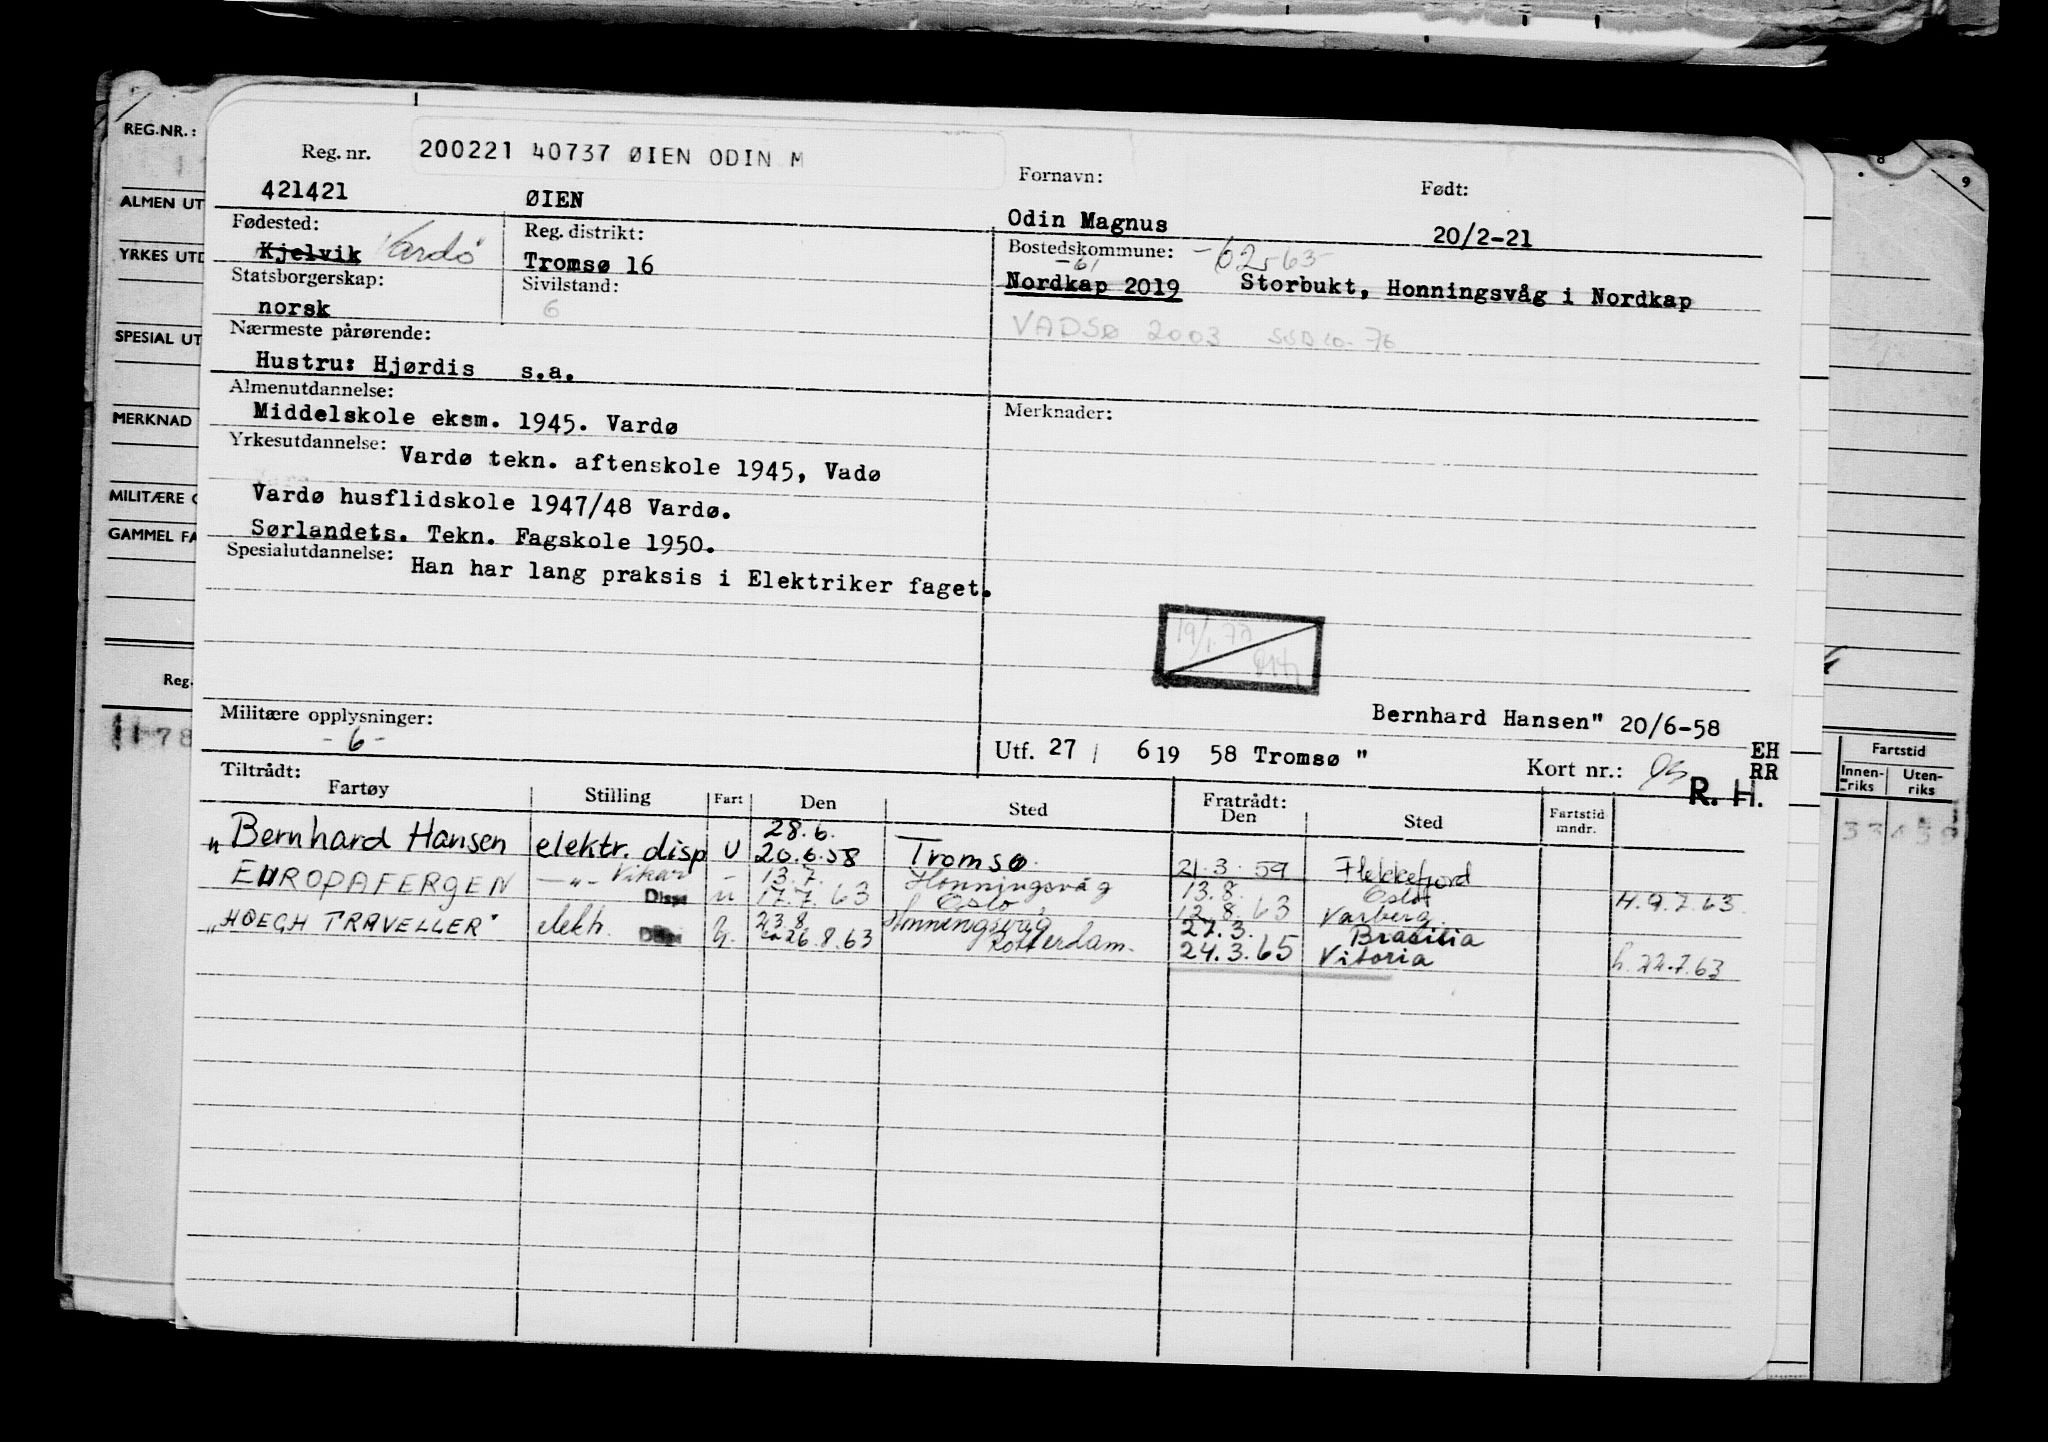 REG.NR.:
ALMEN UT
YRKES UTD
SPESIAL UT
MERKNAD
MILITÆRE
GAMMEL FA
Reg.
1178
8
9
Reg. nr. 200221 40737 ØIEN ODIN M
Fornavn: Født:
421421 ØIEN Odin Magnus 20/2-21
Fødested: Reg. distrikt: Bostedskommune: -62-63-
Kjelvik Vardø Tromsø 16 -61
Nordkap 2019 Storbukt, Honningsvåg i Nordkap
Statsborgerskap: Sivilstand:
norsk 6
VADSØ 2003 SSB 10-76
Nærmeste pårørende:
Hustru: Hjørdis s.a.
Almenutdannelse: Merknader:
Middelskole eksm. 1945. Vardø
Yrkesutdannelse: Vardø tekn. aftenskole 1945, Vadø
Vardø husflidskole 1947/48 Vardø.
Sørlandets. Tekn. Fagskole 1950.
Spesialutdannelse: Han har lang praksis i Elektriker faget.
19/1.77
Bernhard Hansen" 20/6-58
Militære opplysninger:
-6-
Utf. 27 / 6 19 58 Tromsø " Kort nr.:
EH
RR
R. H.
Tiltrådt: Fratrådt:
Fartøy Stilling Fart Den Sted Den Sted Fartstid mndr.
Fartstid
Innen-riks Uten-riks
28.6.
" Bernhard Hansen elektr. disp U 20.6.58 Tromsø. 21.3.59 Flekkefjord
13.7. Honningsvåg 13.8. Oslo
EUROPAFERGEN -"- Vikar Disp u 17.7.63 Oslo 12.8.63 Varberg. H.9.7.63.
23.8 Honningsvåg 27.3. Brasilia
"HOEGH TRAVELLER" elektr. Disp 26.8.63 Rotterdam. 24.3.65 Vitoria h.22.7.63